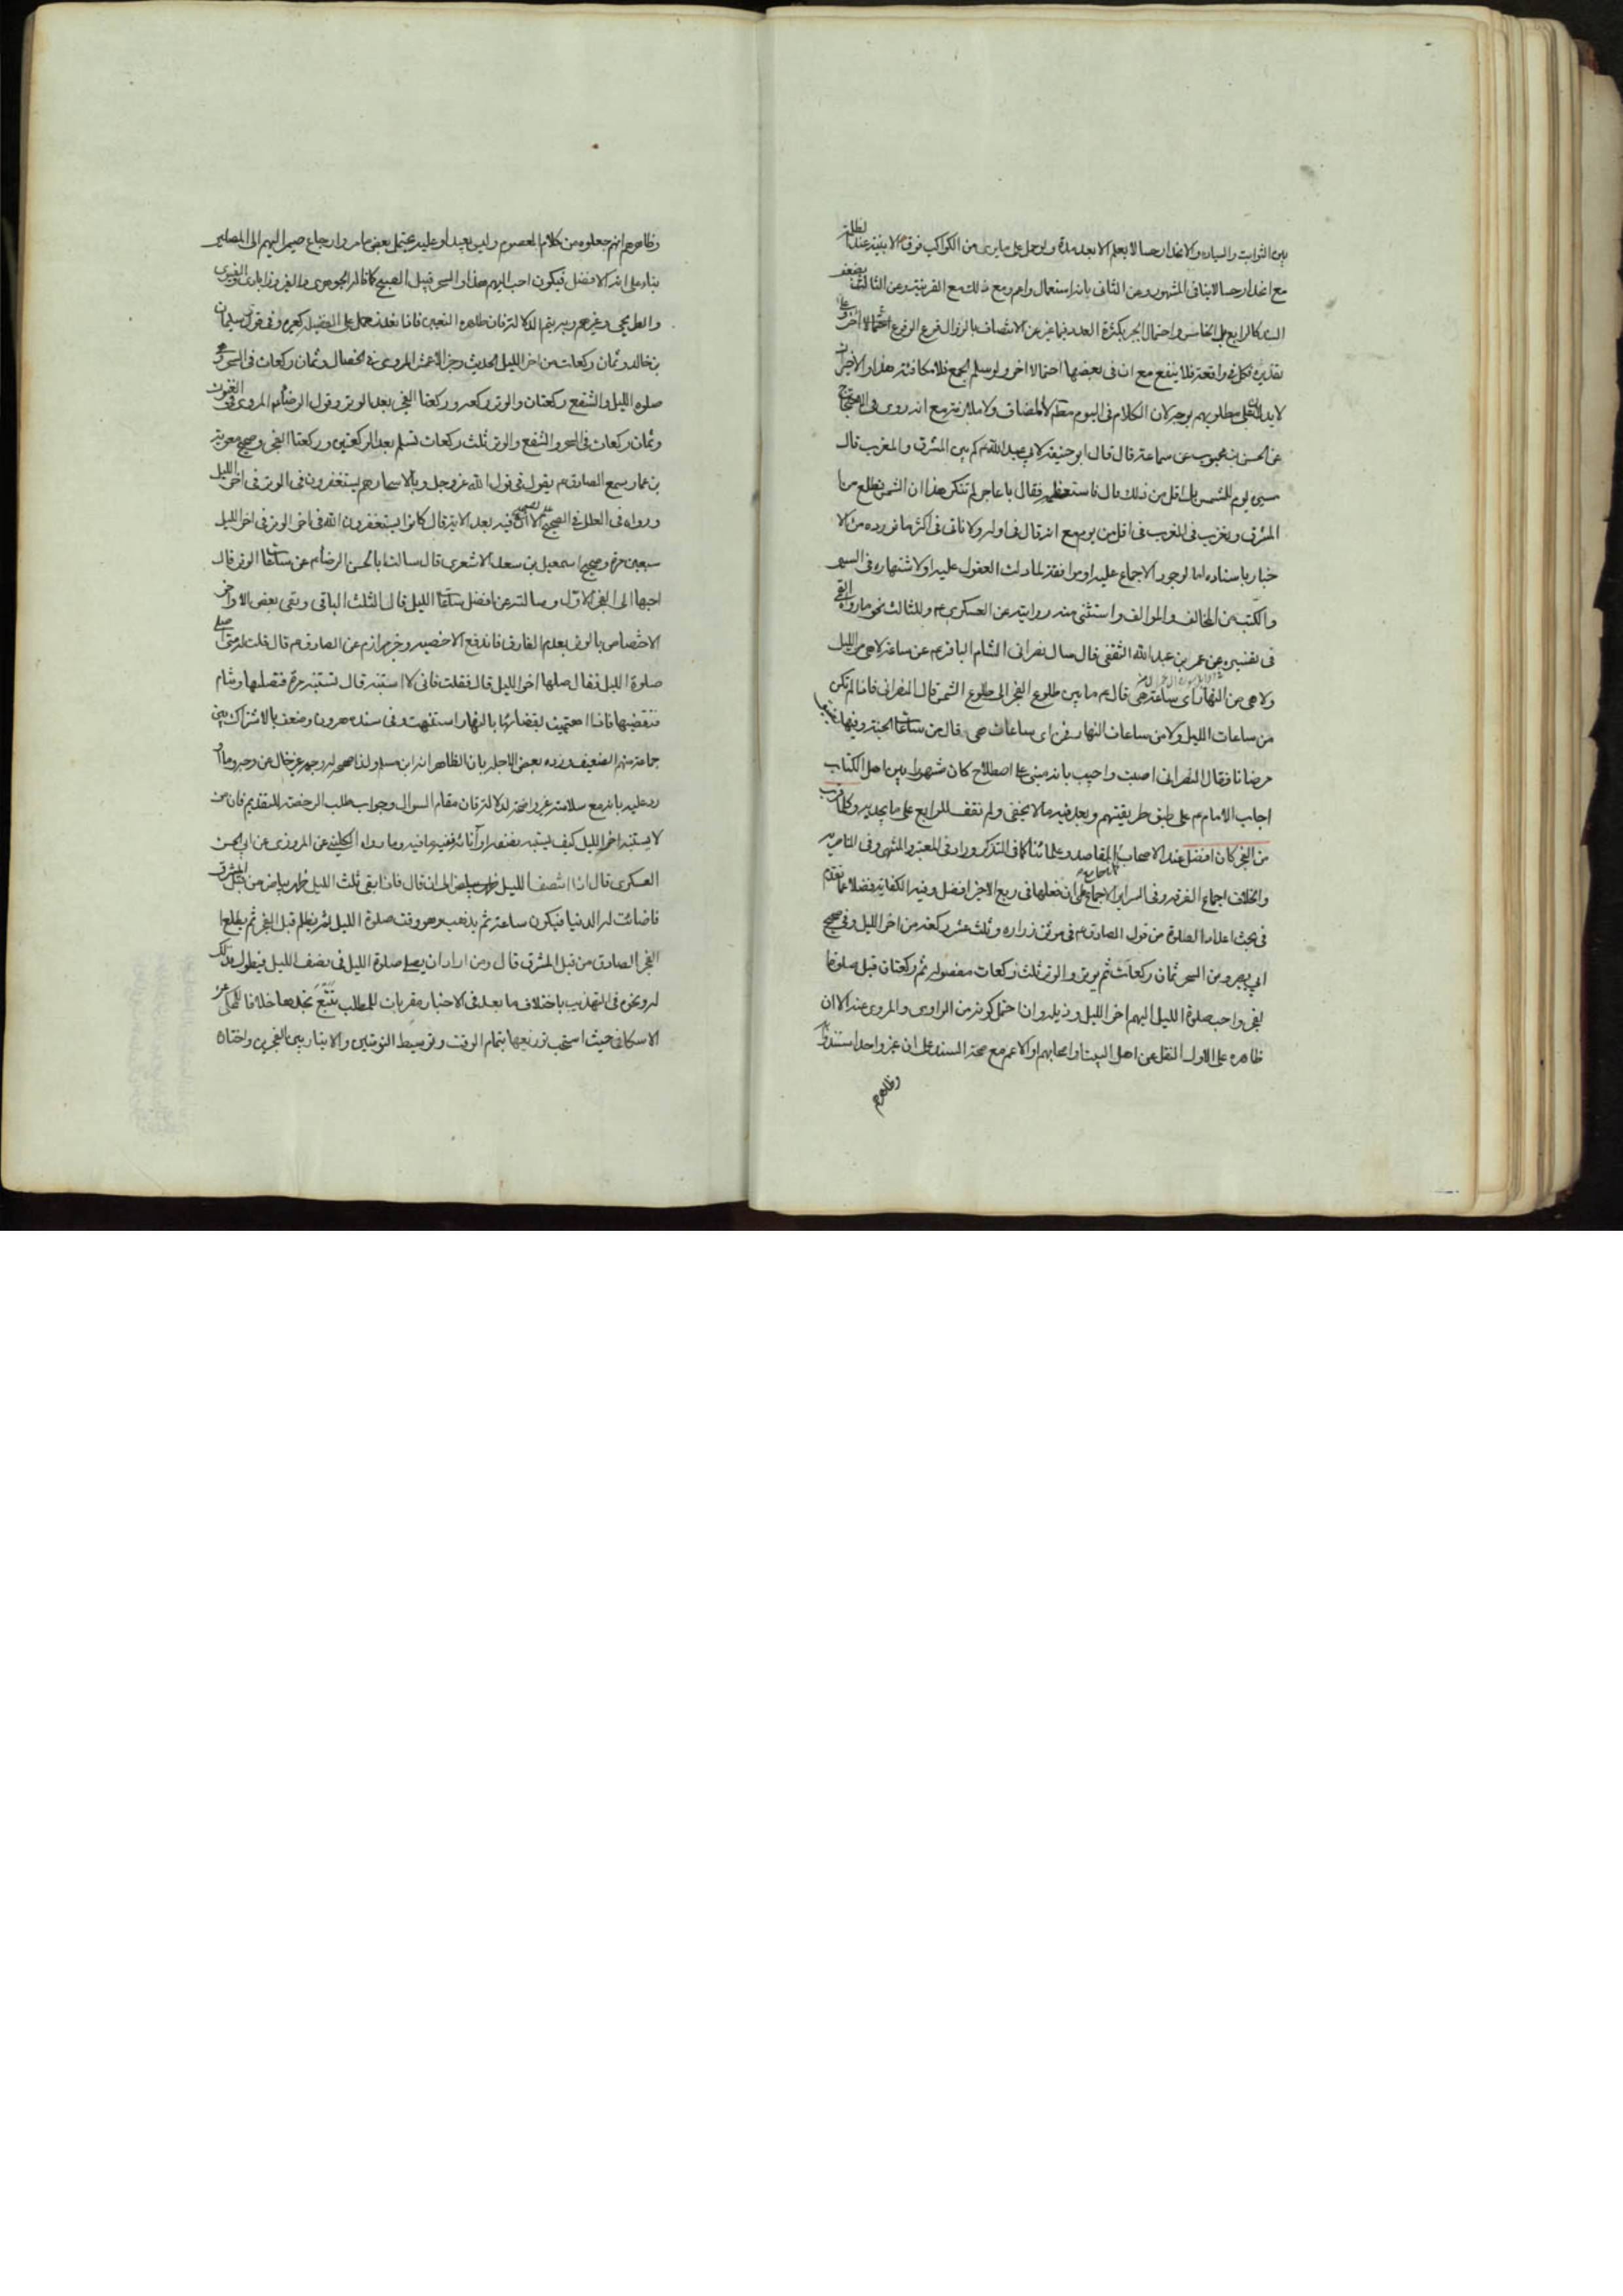 بين الثوابت والسياره والانحدار حسا لا يعلم الا بعد مدة ولو حمل على ما يرى من الكواكب فوق الابنية عند
مع انحدار حسا لا ينافى المشهور وعن الثانى بانه استعمال واعم ومع ذلك مع القرينة وعن الثالث
السند كالرابع بل الخامس واحتمال الجر بكثرة العدد
تقديره فكل فى واقعة فلا ينفع مع ان فى بعضها احتمالا اخر ولو سلم الجمع فلا مكافئة هذا والاخيران
لا يدلان على مطلوبهم بوجه لان الكلام فى اليوم لا المضاف ولا ملازمة مع انه روى فى الاحتجاج
عن الحسن بن محبوب عن سماعة قال قال ابو حنيفة لابى عبد الله ع كم بين المشرق والمغرب قال
مسير يوم للشمس بل اقل من ذلك قال فاستعظمه فقال يا عاجز لم تنكر هذا ان الشمس تطلع من
المشرق وتغرب فى المغرب فى اقل من يوم مع انه قال فى اوله ولا ناتى فى اكثر ما نورده من الا
خبار باسناده اما لوجود الاجماع عليه او موافقته لما دلت العقول عليه او لاشتهاره فى السير
والكتب من المخالف والموالف واستثنى منه روايته عن العسكرى ع وللثالث نحو ما رواه القمى
فى تفسيره عن عمر بن عبد الله الثقفى قال سال نصرانى الشام الباقر ع عن ساعة لا هى من الليل
ولا هى من النهار اى ساعة هى قال ع ما بين طلوع الفجر الى طلوع الشمس قال النصرانى فاذا لم تكن
من ساعات الليل ولا من ساعات النهار فمن اى ساعات هى قال من ساعات الجنة وفيها تفيق
مرضانا فقال النصرانى اصبت واجيب بانه مبنى على اصطلاح كان مشهورا بين اهل الكتاب
اجاب الامام ع على طبق طريقتهم وبعد فيه ما لا يخفى ولم نقف للرابع على ما يجديه وكلما قرب
من الفجر كان افضل عند الاصحاب وعلمائنا كما فى التذكره وزاد فى المعتبر والمنتهى وفى الناصريه
والخلاف اجماع الفرقه وفى السراير الاجماع على ان فعلها فى ربع الاخير افضل وفيه الكفاية فضلا عما تقدم
فى بحث اعداد الصلوة من قول الصادق ع فى موثق زراره وثلث عشر ركعة من اخر الليل وفى صحيح
ابى بصير ومن السحر ثمان ركعات ثم يوتر والوتر ثلث ركعات مفصوله ثم ركعتان قبل صلوة
الفجر واحب صلوة الليل اليهم اخر الليل وذيله وان احتمل كونه من الراوى والمروى عنه الا ان
ظاهره على الاول النقل عن اهل البيت او اصحابهم او الاعم مع صحة السند على ان غير واحد
وظاهرهم
وظاهرهم انهم جعلوه من كلام المعصوم وليس بعيدا وعليه يحتمل بعض ما مر وارجاع ضمير اليهم الى المصلين
بناء على انه الافضل فيكون احب اليهم هذا والسحر قبيل الصبح كما قاله الجوهرى والفيروزابادى والفيومى
والطريحى وغيرهم وبه يتم الدلالة
بن خالد وثمان ركعات من اخر الليل الحديث وخبر الاعمش المروى فى الخصال وثمان ركعات فى السحر وهى
صلوه الليل والشفع ركعتان والوتر ركعه وركعتا الفجر بعد الوتر وقول الرضا ع المروى فى العيون
وثمان ركعات فى السحر والشفع والوتر ثلث ركعات تسلم بعد الركعتين وركعتا الفجر وصحيح معوية
بن عمار سمع الصادق ع يقول فى قول الله عز وجل وبالاسحار هم يستغفرون فى الوتر فى اخر الليل
ورواه فى العلل فى الصحيح الا ان فيه بعد الاية قال كانوا يستغفرون الله فى اخر الوتر فى اخر الليل
سبعين مرة وصحيح اسمعيل بن سعد الاشعرى قال سالت ابا الحسن الرضا ع عن ساعات الوتر قال
احبها الى الفجر الاول وسالته عن افضل ساعات الليل قال الثلث الباقى وبقى بعض الاواخر
الاختصاص بالوتر بعدم الفارق فاندفع الاخصيه وخبر مرازم عن الصادق ع قال قلت له متى اصلى
صلوة الليل فقال صلها اخر الليل قال فقلت فانى لا استنبه قال تستنبه مرة فتصليها وتنام
فتقضيها فاذا اهتممت بقضائها بالنهار استنبهت وفى سنده هرون وضعف بالاشتراك بين
جماعة منهم الضعيف ورده بعض الاجلة بان الظاهر انه ابن مسلم ولذا صححه
رد عليه بانه مع سلامته غير واضحة الدلالة فان مقام السوال وجواب طلب الرخصة للتقديم فان من
لا يستنبه اخر الليل كيف يستنبه وما رواه الكلينى عن المروزى عن ابى الحسن
العسكرى قال اذا انتصف الليل ظهر بياض الى ان قال فاذا بقى ثلث الليل ظهر بياض من قبل المشرق
فاضائت له الدنيا فيكون ساعة ثم يذهب وهو وقت صلوة الليل ثم يظلم قبل الفجر ثم يطلع
الفجر الصادق من قبل المشرق قال ومن اراد ان يصلى صلوة الليل فى نصف الليل فيطول فذلك
له ونحوه فى التهذيب باختلاف ما بعد فى الاخبار مقربات للمطلب تتبع تجدها خلافا للمحكى عن
الاسكافى حيث استحب توزيعها بتمام الوقت وتوسيط النومتين والايتار بين الفجرين واختاه